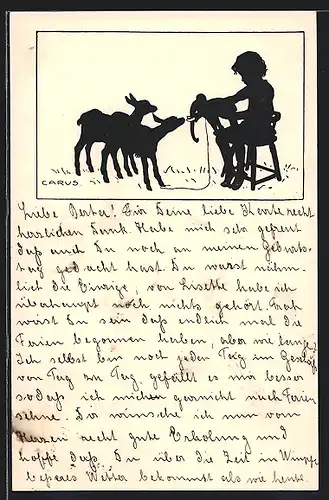 CARUS.
Liebe Berta! Für Deine liebe Karte recht
herzlichen Dank. Habe mich sehr gefreut
daß auch Du noch an meinen Geburts-
tag gedacht hast. Du warst näm-
lich die Einzige, von Lisette habe ich
überhaupt noch nichts gehört. Froh
wirst Du sein daß endlich mal die
Ferien begonnen haben, aber wie lange?
Ich selbst bin noch jeden Tag im Geschäft
von Tag zu Tag gefällt es mir besser
sodaß ich mich garnicht nach Ferien
sehne. Dir wünsche ich nun von
Herzen recht gute Erholung und
hoffe daß Du über die Zeit in Wimpf
besseres Wetter bekommst als wie heute.